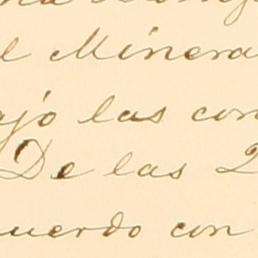 l Minera
ajo las con
De las 2
uerdo con